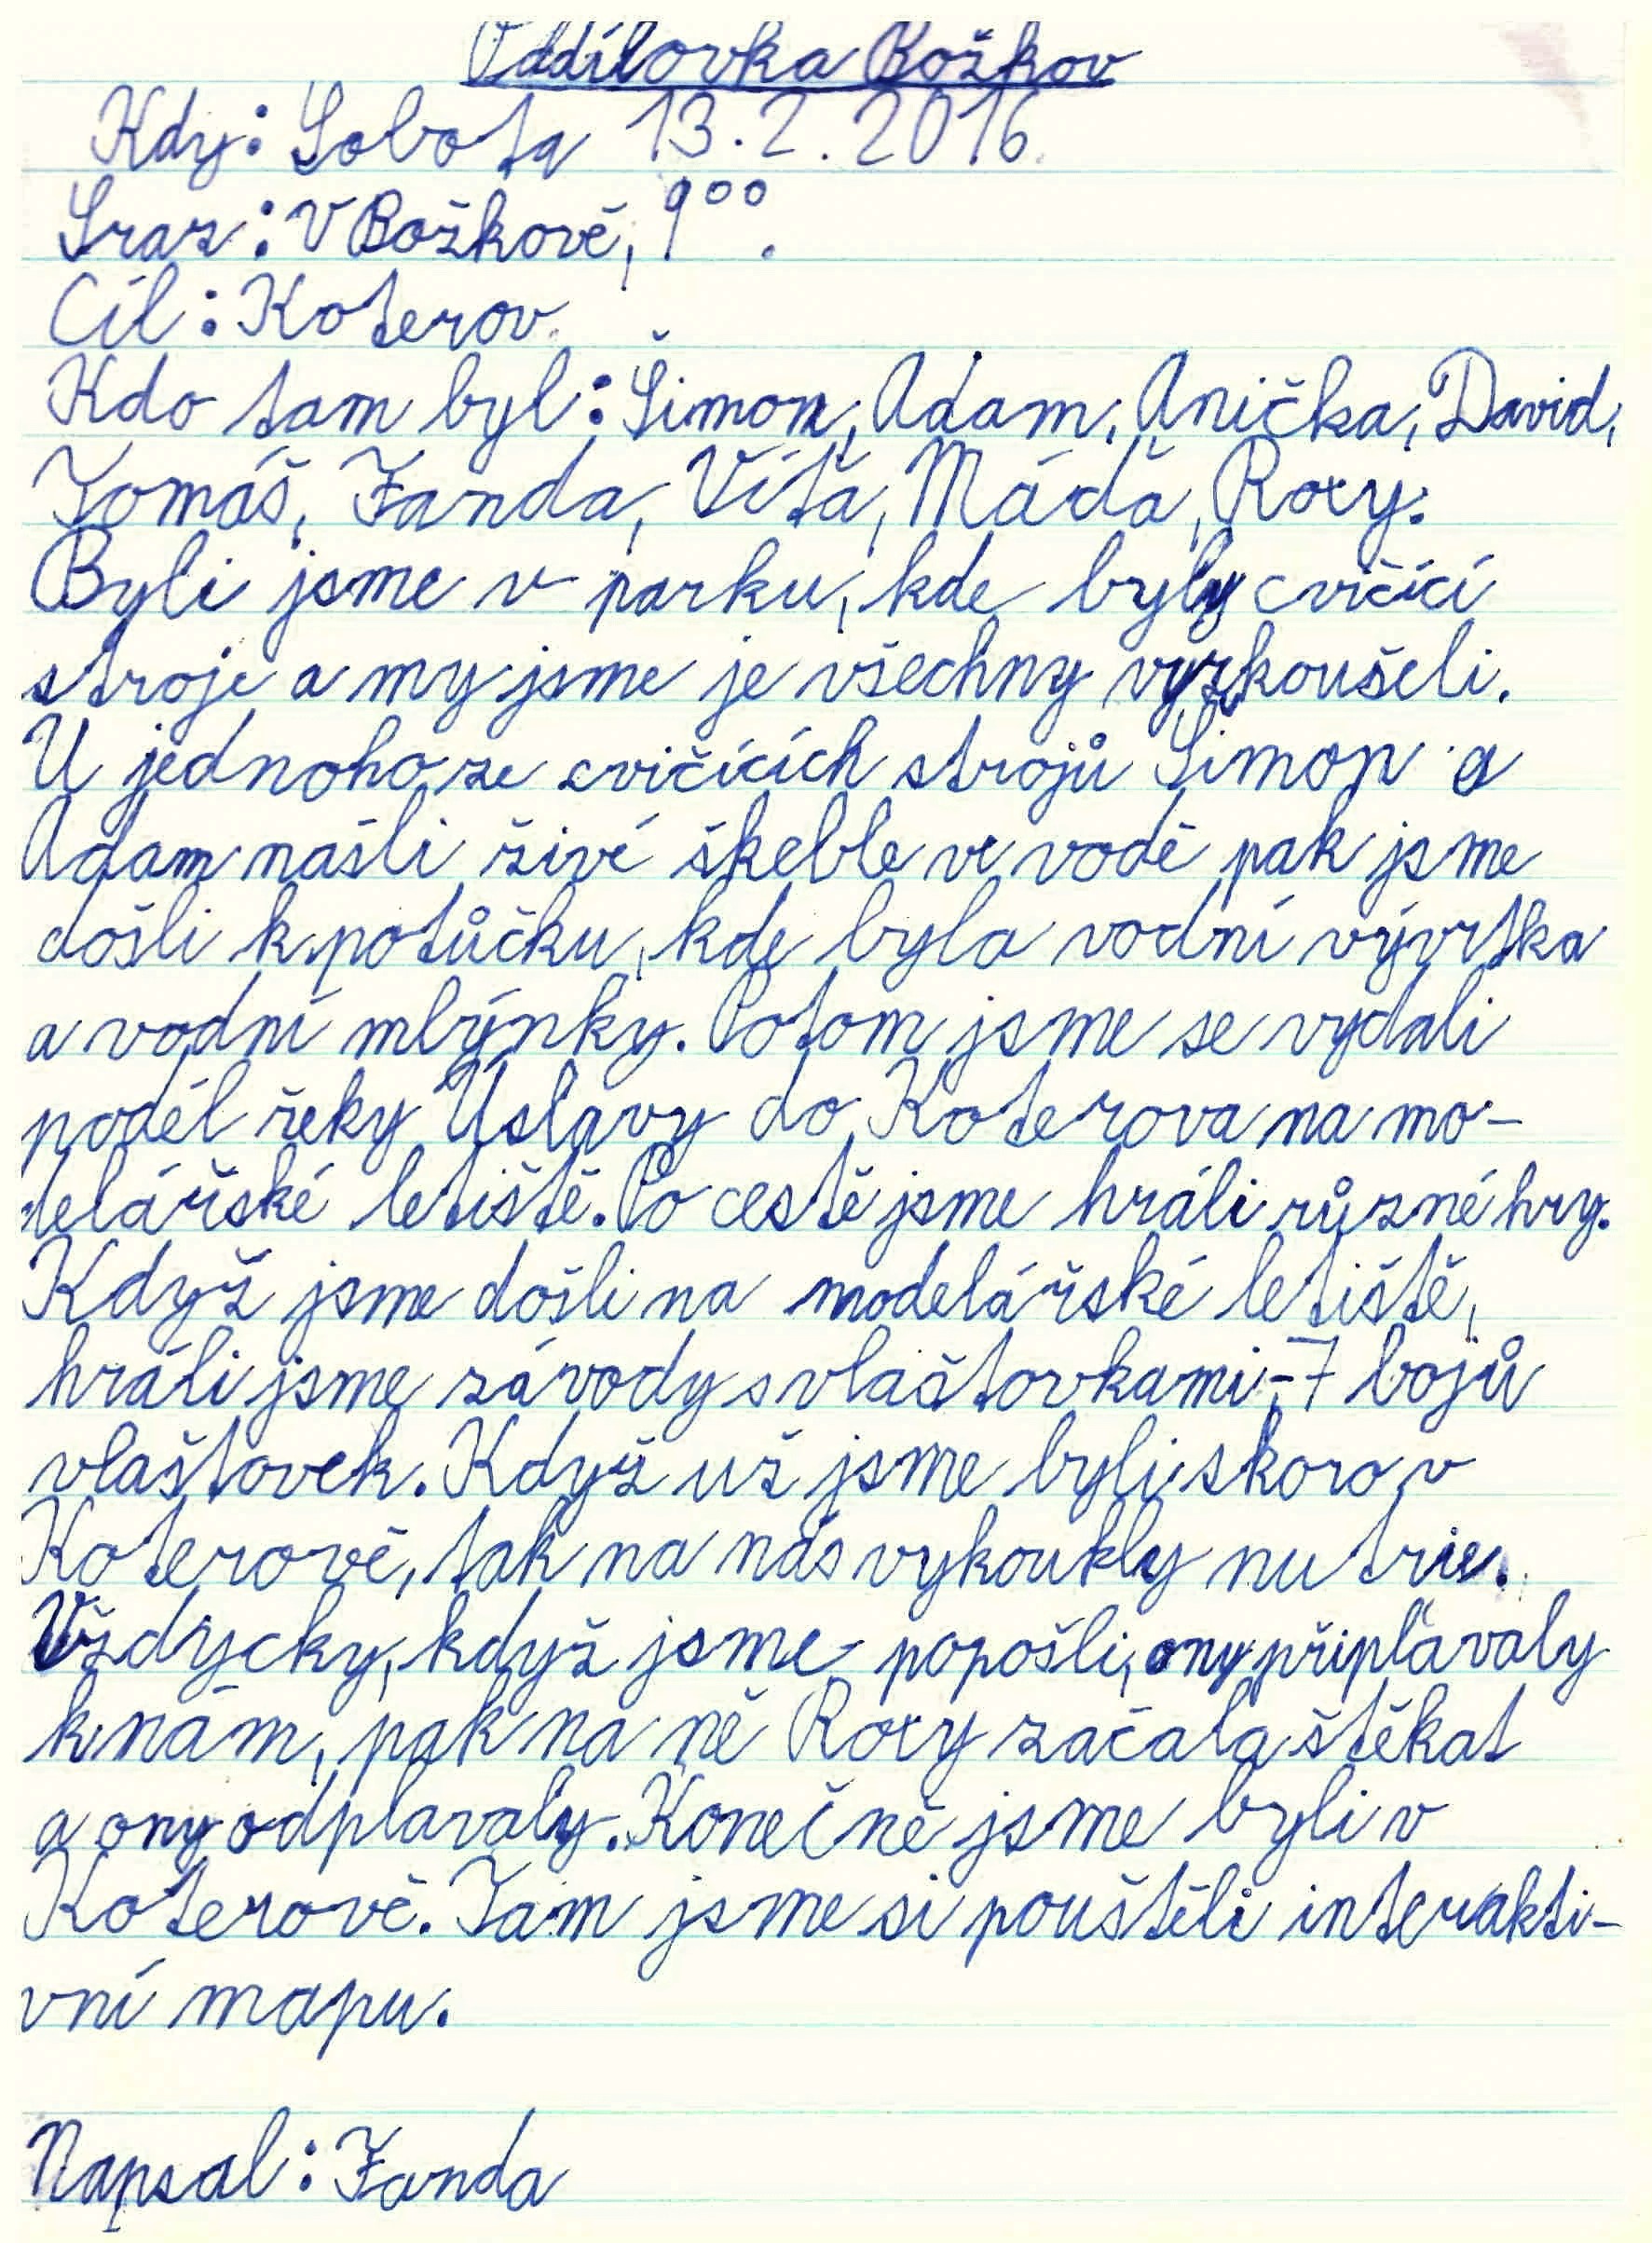 Oddílovka Božkov
Kdy: Sobota 13.2.2016.
Sraz: V Božkově, 9⁰⁰.
Cíl: Koterov.
Kdo tam byl: Šimon, Adam, Anička, David,
Tomáš, Fanda, Víťa, Máďa, Roxy.
Byli jsme v parku, kde byly cvičící
stroje a my jsme je všechny vyzkoušeli.
U jednoho ze cvičících strojů Šimon a
Adam našli živé škeble ve vodě pak jsme
došli k potůčku, kde byla vodní vývrtka
a vodní mlýnky. Potom jsme se vydali
podél řeky Úslavy do Koterova na mo-
delářské letiště. Po cestě jsme hráli různé hry.
Když jsme došli na modelářské letiště,
hráli jsme závody s vlaštovkami - 7 bojů
vlaštovek. Když už jsme byli skoro v
Koterově, tak na nás vykoukly nutrie.
Vždycky, když jsme popošli, ony připlavaly
k nám, pak na ně Roxy začala štěkat
a ony odplavaly. Konečně jsme byli v
Koterově. Tam jsme si pouštěli interakti-
vní mapu.
Napsal: Fanda